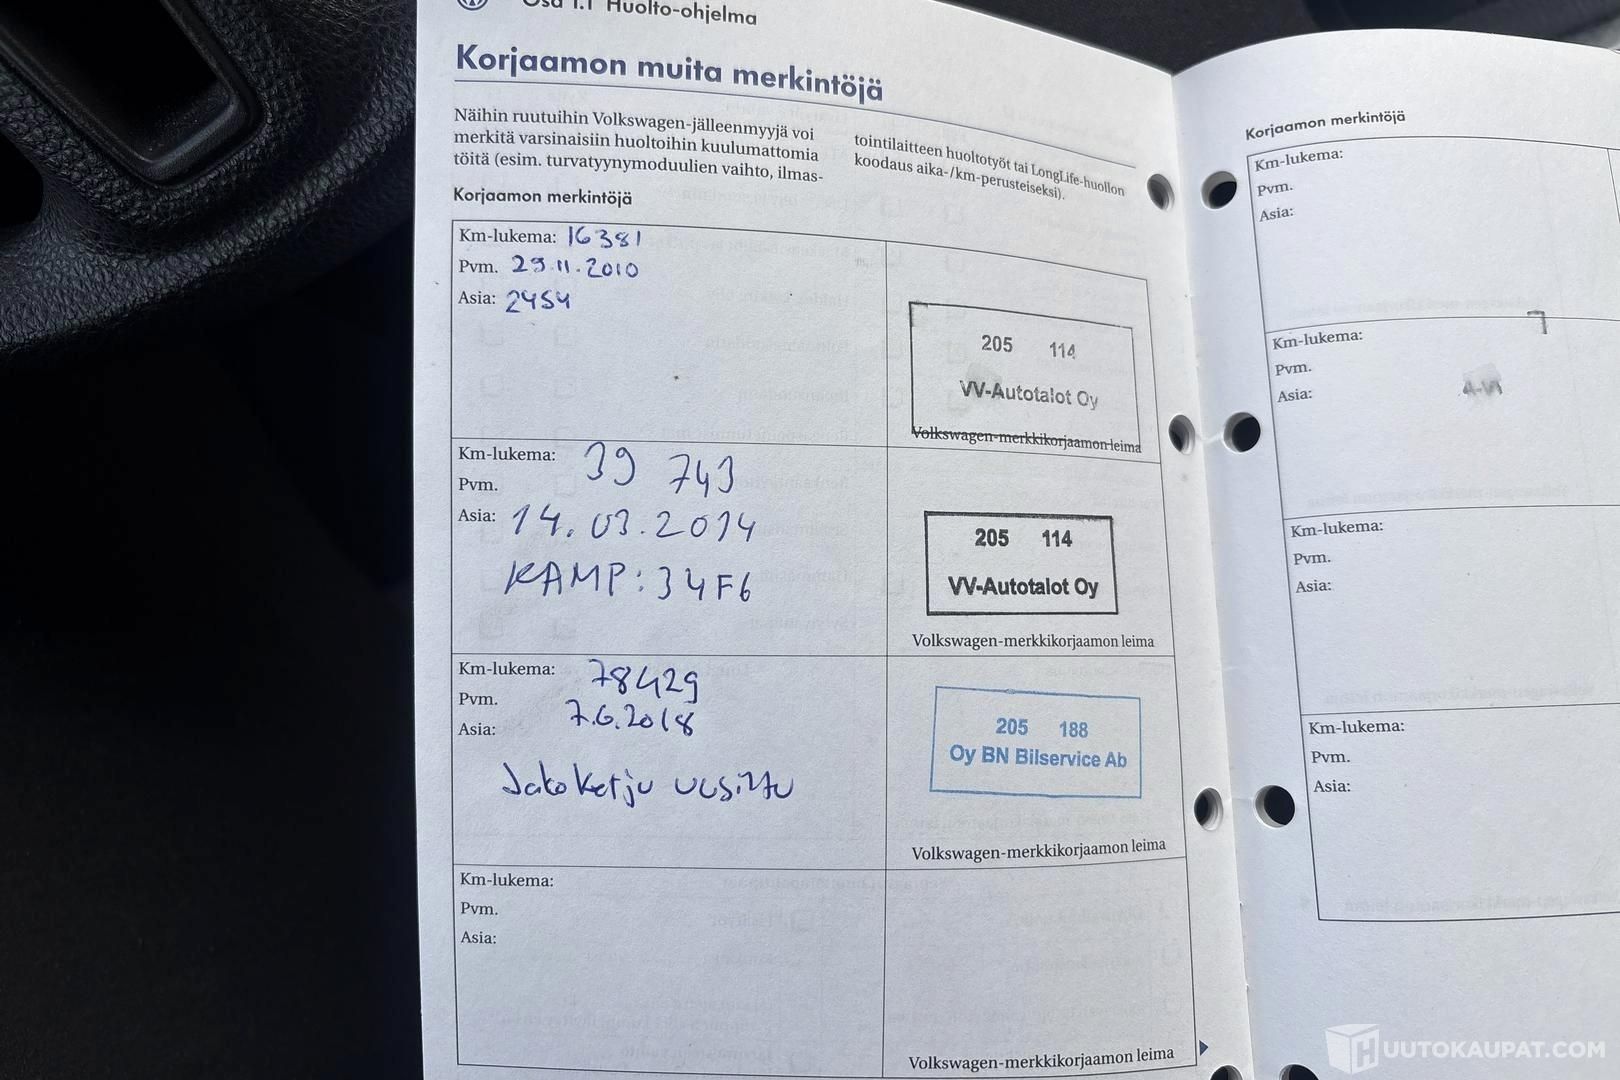 Osa 1.1 Huolto-ohjelma
Korjaamon muita merkintöjä
Näihin ruutuihin Volkswagen-jälleenmyyjä voi
merkitä varsinaisiin huoltoihin kuulumattomia
töitä (esim. turvatyynymoduulien vaihto, ilmas-
tointilaitteen huoltotyöt tai LongLife-huollon
koodaus aika-/km-perusteiseksi).
Korjaamon merkintöjä
Km-lukema: 16381
Pvm. 29.11.2010
Asia: 2454
205 114
VV-Autotalot Oy
Volkswagen-merkkikorjaamon leima
Km-lukema: 39 743
Pvm.
Asia: 14.03.2014
KAMP: 34F6
205 114
VV-Autotalot Oy
Volkswagen-merkkikorjaamon leima
Km-lukema: 78429
Pvm. 7.6.2018
Asia:
Jakoketju uusittu
205 188
Oy BN Bilservice Ab
Volkswagen-merkkikorjaamon leima
Km-lukema:
Pvm.
Asia:
Volkswagen-merkkikorjaamon leima
Korjaamon merkintöjä
Km-lukema:
Pvm.
Asia:
Km-lukema:
Pvm.
Asia:
Km-lukema:
Pvm.
Asia:
Km-lukema:
Pvm.
Asia:
HUUTOKAUPAT.COM